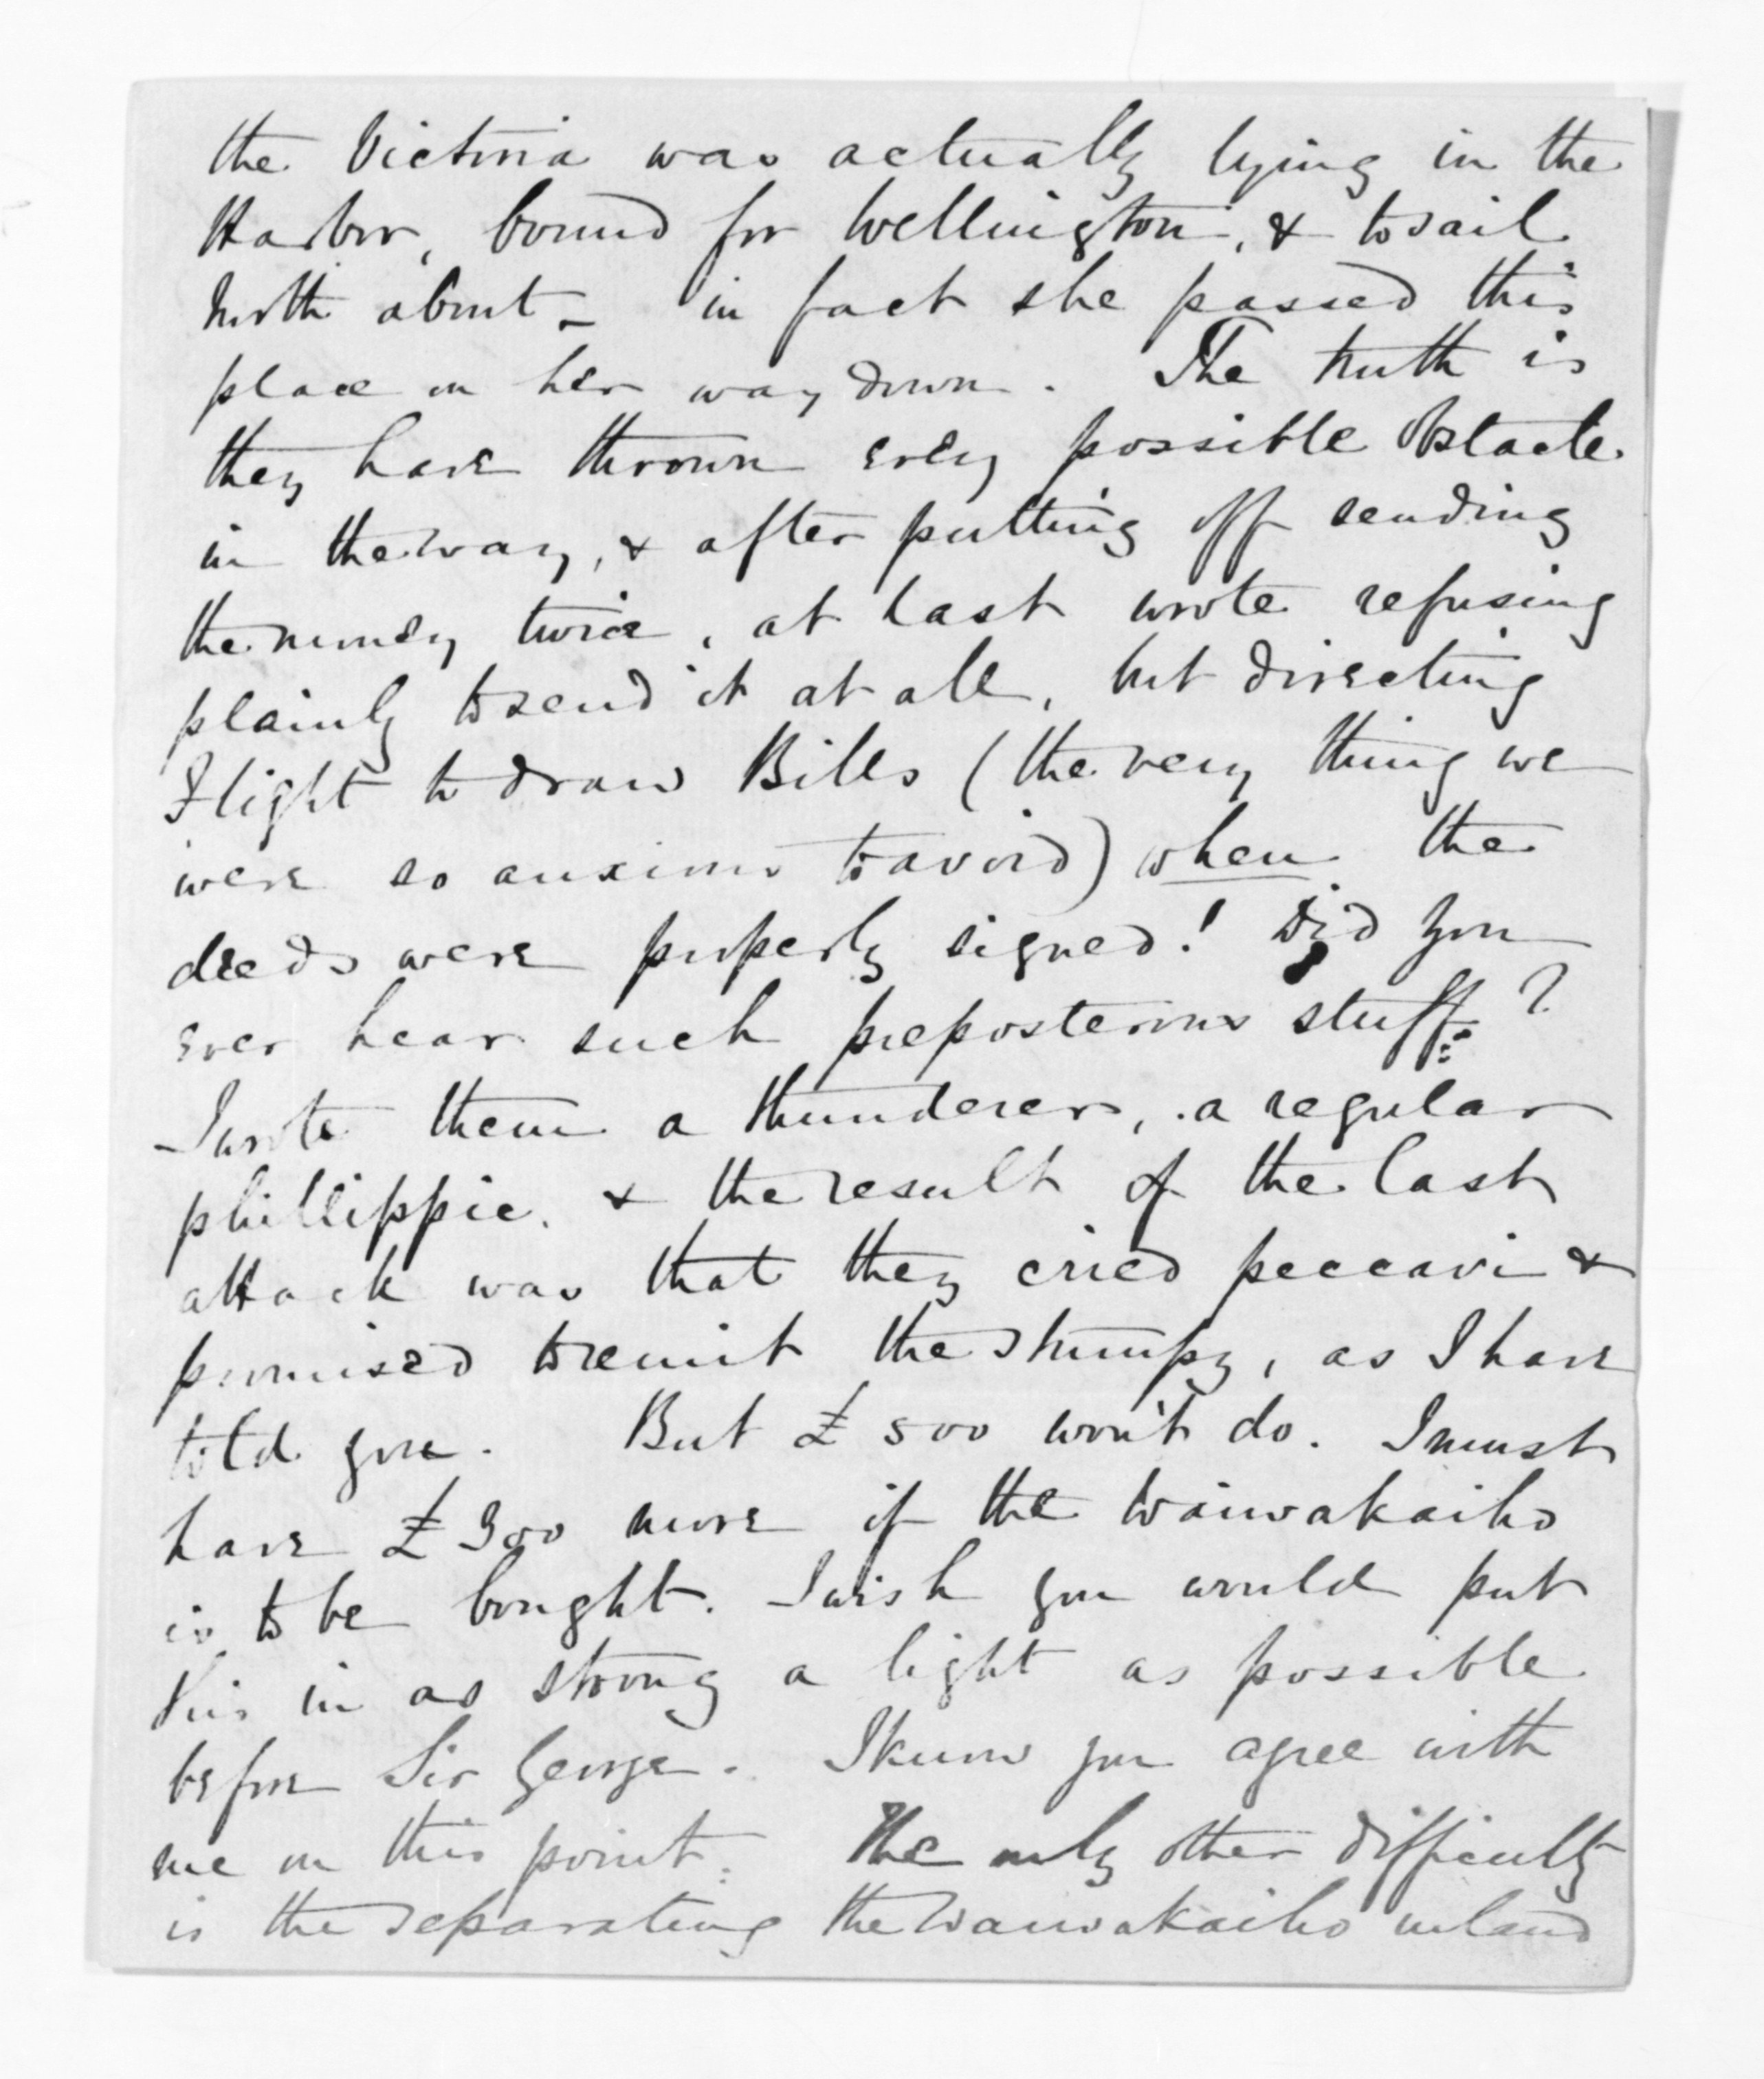 the Victoria was actually lying in the
Harbor, bound for Wellington, & to sail
North about _ in fact she passed this
place on her way down. The truth is
they have thrown every possible Obstacle
in the way, & after putting off sending
the money twice, at last wrote refusing
plainly to send it at all, but directing
Flight to draw Bills (the very thing we
were so anxious to avoid) when the
deeds were properly signed! Did you
ever hear such preposterous stuff?
I wrote them a thunderer, a regular
phillippic. & the result of the last
attack was that they cried peccavi &
promised to remit the stumpy, as I have
told you. But £500 won't do. I must
have £300 more if the Waiwakaiho
is to be bought. I wish you would put
this in as strong a light as possible
before Sir George. I know you agree with
me on this point. The only other difficulty
is the separating the Waiwakaiho inland